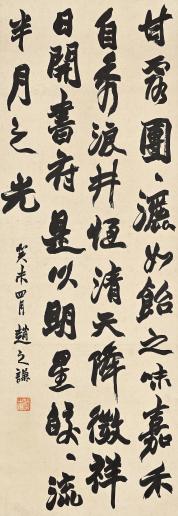 甘露團、灑如飴之味嘉禾
自秀浪井恆清天降徵祥
日開書府是以明星候、流
半月之光
癸未四月趙之謙